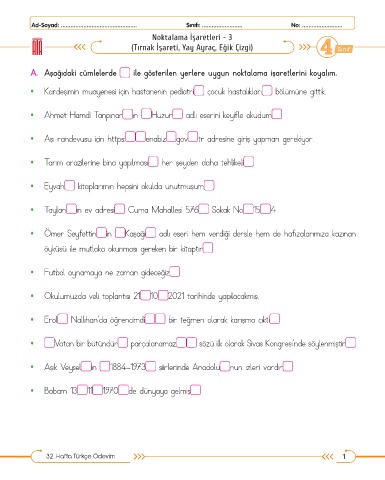 Ad-Soyad: ............................................... Sınıfı: ......................... No: .........................
Noktalama İşaretleri - 3
(Tırnak İşareti, Yay Ayraç, Eğik Çizgi)
4. Sınıf
A. Aşağıdaki cümlelerde □ ile gösterilen yerlere uygun noktalama işaretlerini koyalım.
• Kardeşimin muayenesi için hastanenin pediatri□ çocuk hastalıkları□ bölümüne gittik.
• Ahmet Hamdi Tanpınar□ın □Huzur□ adlı eserini keyifle okudum□
• Aşı randevusu için https□□□enabız□gov□tr adresine giriş yapman gerekiyor.
• Tarım arazilerine bina yapılması□ her şeyden daha tehlikeli□
• Eyvah□ kitaplarımın hepsini okulda unutmuşum□
• Taylan□ın ev adresi□ Cuma Mahallesi 576□ Sokak No□15□4
• Ömer Seyfettin□in □Kaşağı□ adlı eseri hem verdiği dersle hem de hafızalarımıza kazınan
öyküsü ile mutlaka okunması gereken bir kitaptır□
• Futbol oynamaya ne zaman gideceğiz□
• Okulumuzda veli toplantısı 21□10□2021 tarihinde yapılacakmış.
• Erol□ Nallıhan'da öğrencimdi□□ bir teğmen olarak karşıma çıktı□
• □Vatan bir bütündür□ parçalanamaz□□ sözü ilk olarak Sivas Kongresi'nde söylenmiştir□
• Aşık Veysel□in □1884-1973□ şiirlerinde Anadolu□nun izleri vardır□
• Babam 13□11□1970□de dünyaya gelmiş□
32. Hafta Türkçe Ödevim
1